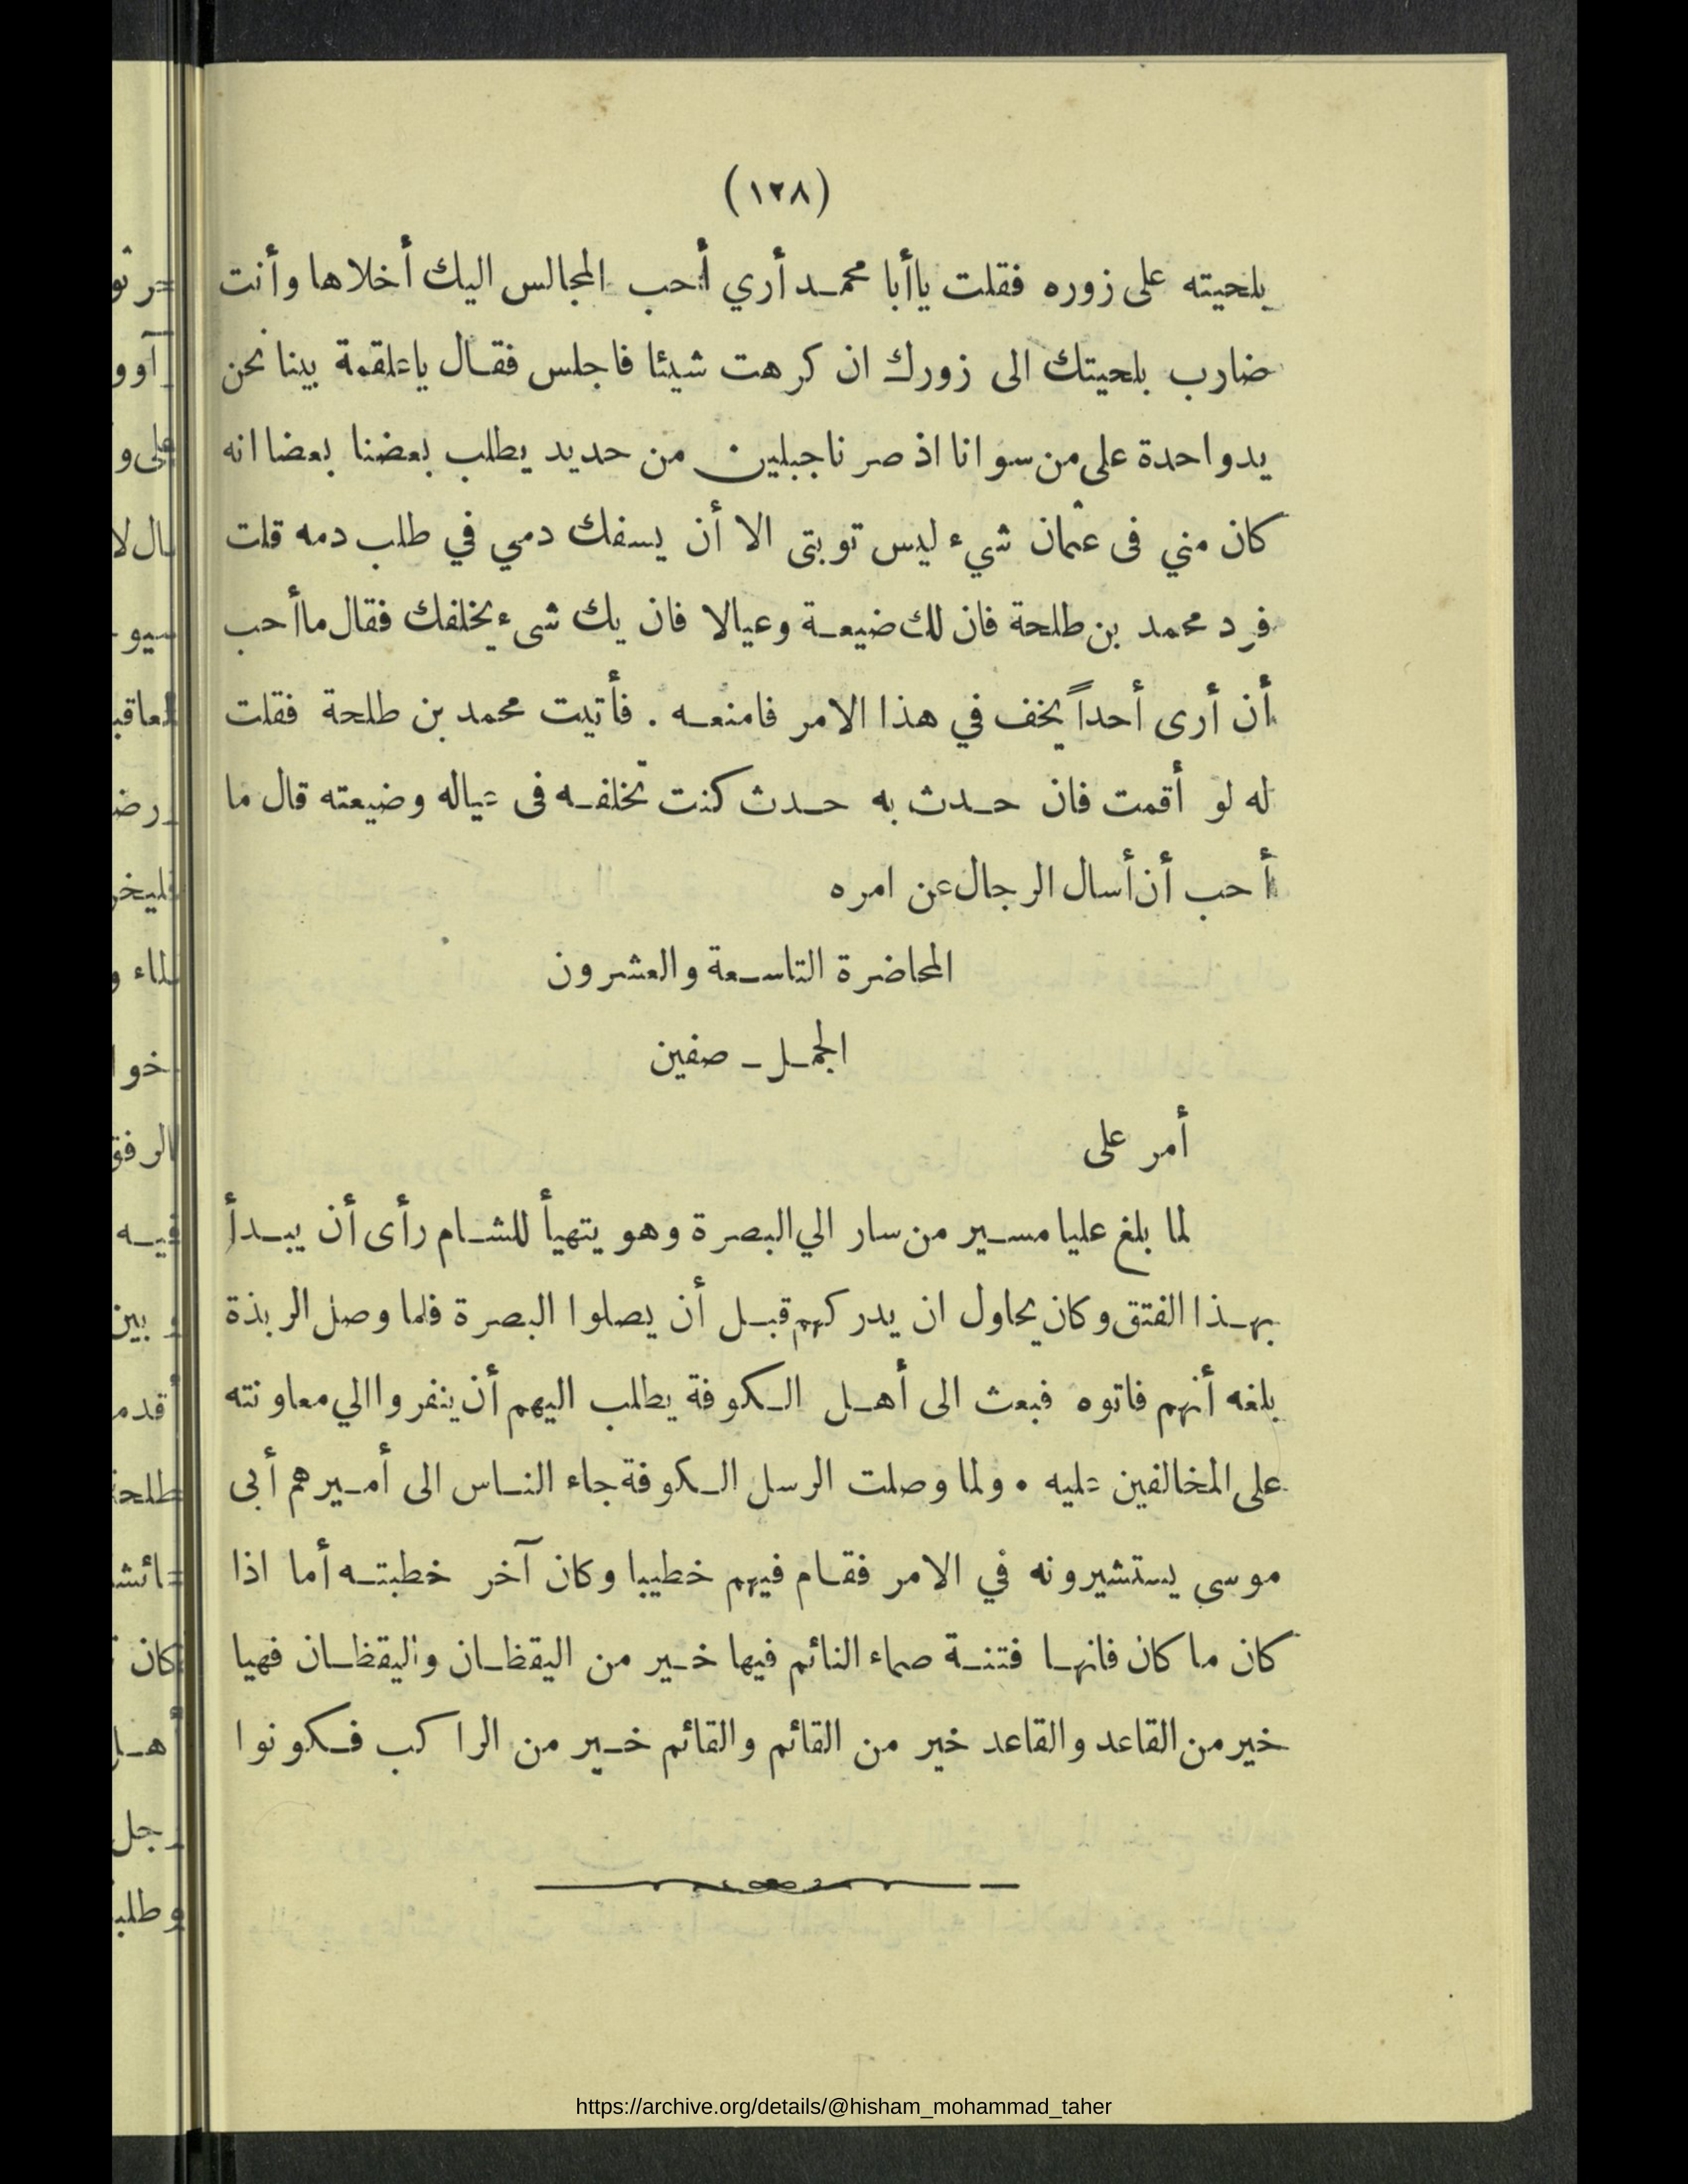 (١٢٨)
بلحيته على زوره فقلت ياأبا محمد أري أحب المجالس اليك أخلاها وأنت
ضارب بلحيتك الى زورك ان كرهت شيئا فاجلس فقال ياعلقمة بينا نحن
يدواحدة على من سوانا اذ صرنا جبلين من حديد يطلب بعضنا بعضا انه
كان مني فى عثمان شيء ليس توبتى الا أن يسفك دمي في طلب دمه قلت
فرد محمد بن طلحة فان لك ضيعة وعيالا فان يك شىء يخلفك فقال ماأحب
أن أرى أحداً يخف في هذا الامر فامنعه . فأتيت محمد بن طلحة فقلت
له لو أقمت فان حدث به حدث كنت تخلفه فى عياله وضيعته قال ما
أحب أن أسال الرجال عن امره
المحاضرة التاسعة والعشرون
الجمل ـ صفين
أمر على
لما بلغ عليا مسير من سار الي البصرة وهو يتهيأ للشام رأى أن يبدأ
بهذا الفتق وكان يحاول ان يدركهم قبل أن يصلوا البصرة فلما وصل الربذة
بلغه أنهم فاتوه فبعث الى أهل الكوفة يطلب اليهم أن ينفروا الي معاونته
على المخالفين عليه . ولما وصلت الرسل الكوفة جاء الناس الى أميرهم أبى
موسى يستشيرونه في الامر فقام فيهم خطيبا وكان آخر خطبته أما اذا
كان ما كان فانها فتنة صماء النائم فيها خير من اليقظان واليقظان فهيا
خير من القاعد والقاعد خير من القائم والقائم خير من الراكب فكونوا
https://archive.org/details/@hisham_mohammad_taher